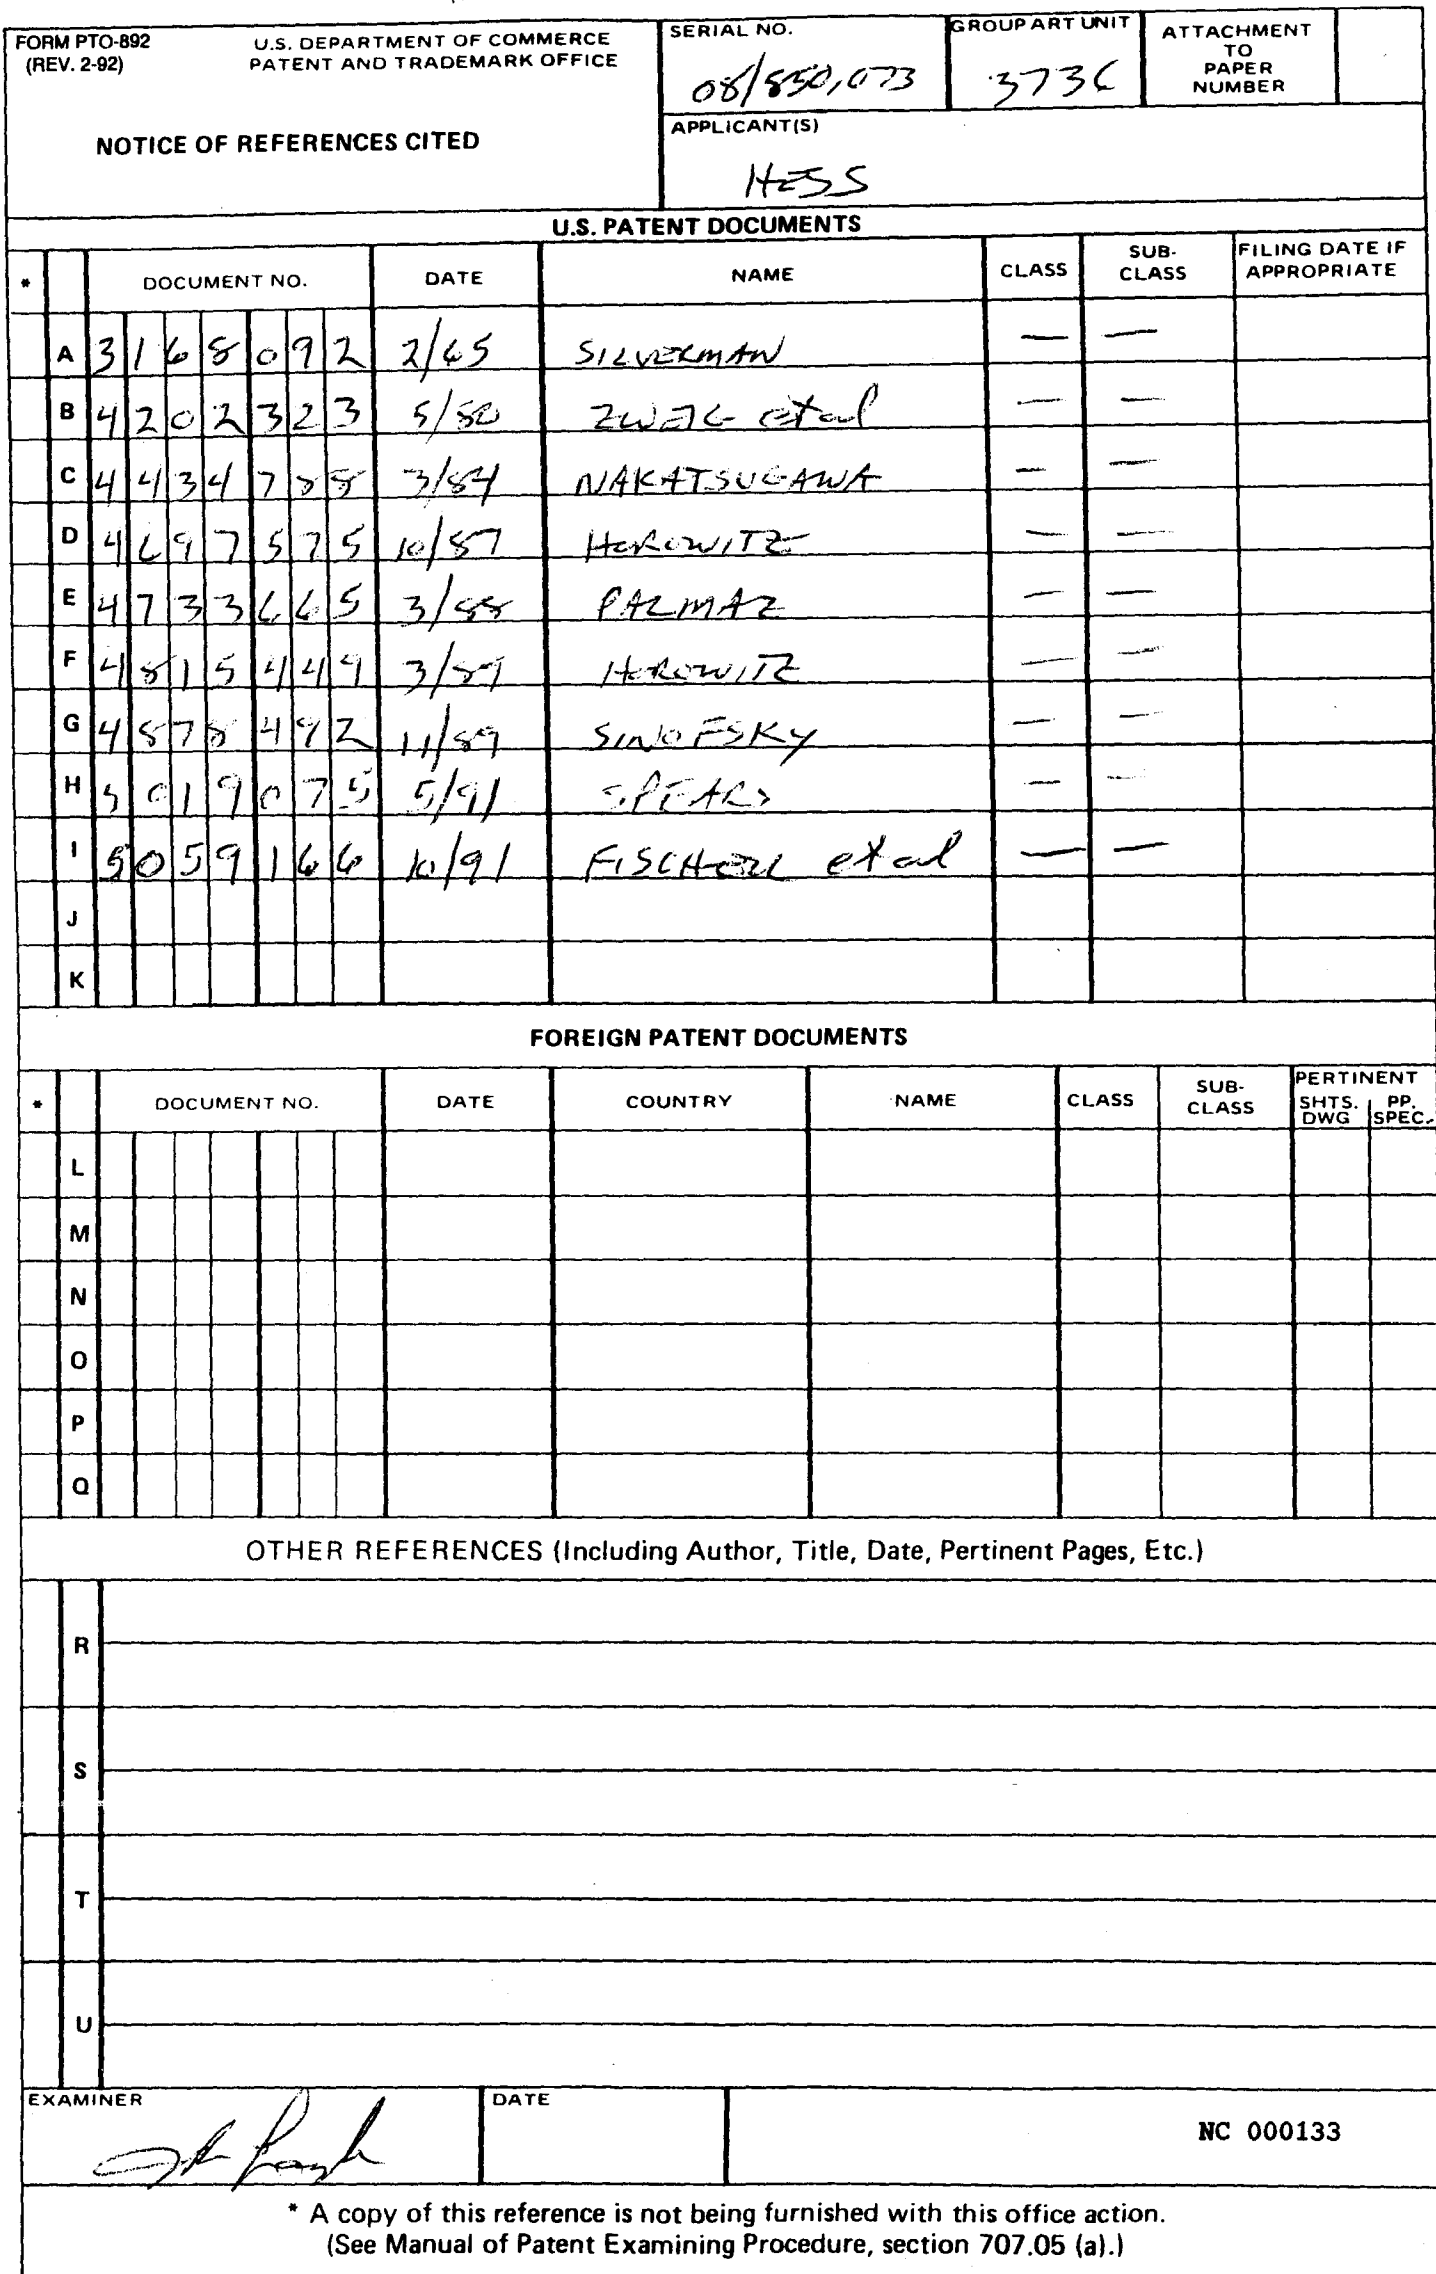 FORM PTO-892
(REV. 2-92)
U.S. DEPARTMENT OF COMMERCE
PATENT AND TRADEMARK OFFICE
NOTICE OF REFERENCES CITED
SERIAL NO.
08/850,073
GROUP ART UNIT
3736
ATTACHMENT
TO
PAPER
NUMBER
APPLICANT(S)
HESS
U.S. PATENT DOCUMENTS
* DOCUMENT NO. DATE NAME CLASS SUB-CLASS FILING DATE IF APPROPRIATE
A 3168092 2/65 SILVERMAN — —
B 4202323 5/80 ZWEIG et al — —
C 4434788 3/84 NAKATSUGAWA — —
D 4697575 10/87 HOROWITZ — —
E 4733665 3/88 PALMAZ — —
F 4815449 3/89 HOROWITZ — —
G 4878492 11/89 SINOFSKY — —
H 5019075 5/91 SPEARS — —
I 5059166 10/91 FISCHELL et al — —
J
K
FOREIGN PATENT DOCUMENTS
* DOCUMENT NO. DATE COUNTRY NAME CLASS SUB-CLASS PERTINENT SHTS. DWG PP. SPEC.
L
M
N
O
P
Q
OTHER REFERENCES (Including Author, Title, Date, Pertinent Pages, Etc.)
R
S
T
U
EXAMINER
DATE
NC 000133
* A copy of this reference is not being furnished with this office action.
(See Manual of Patent Examining Procedure, section 707.05 (a).)